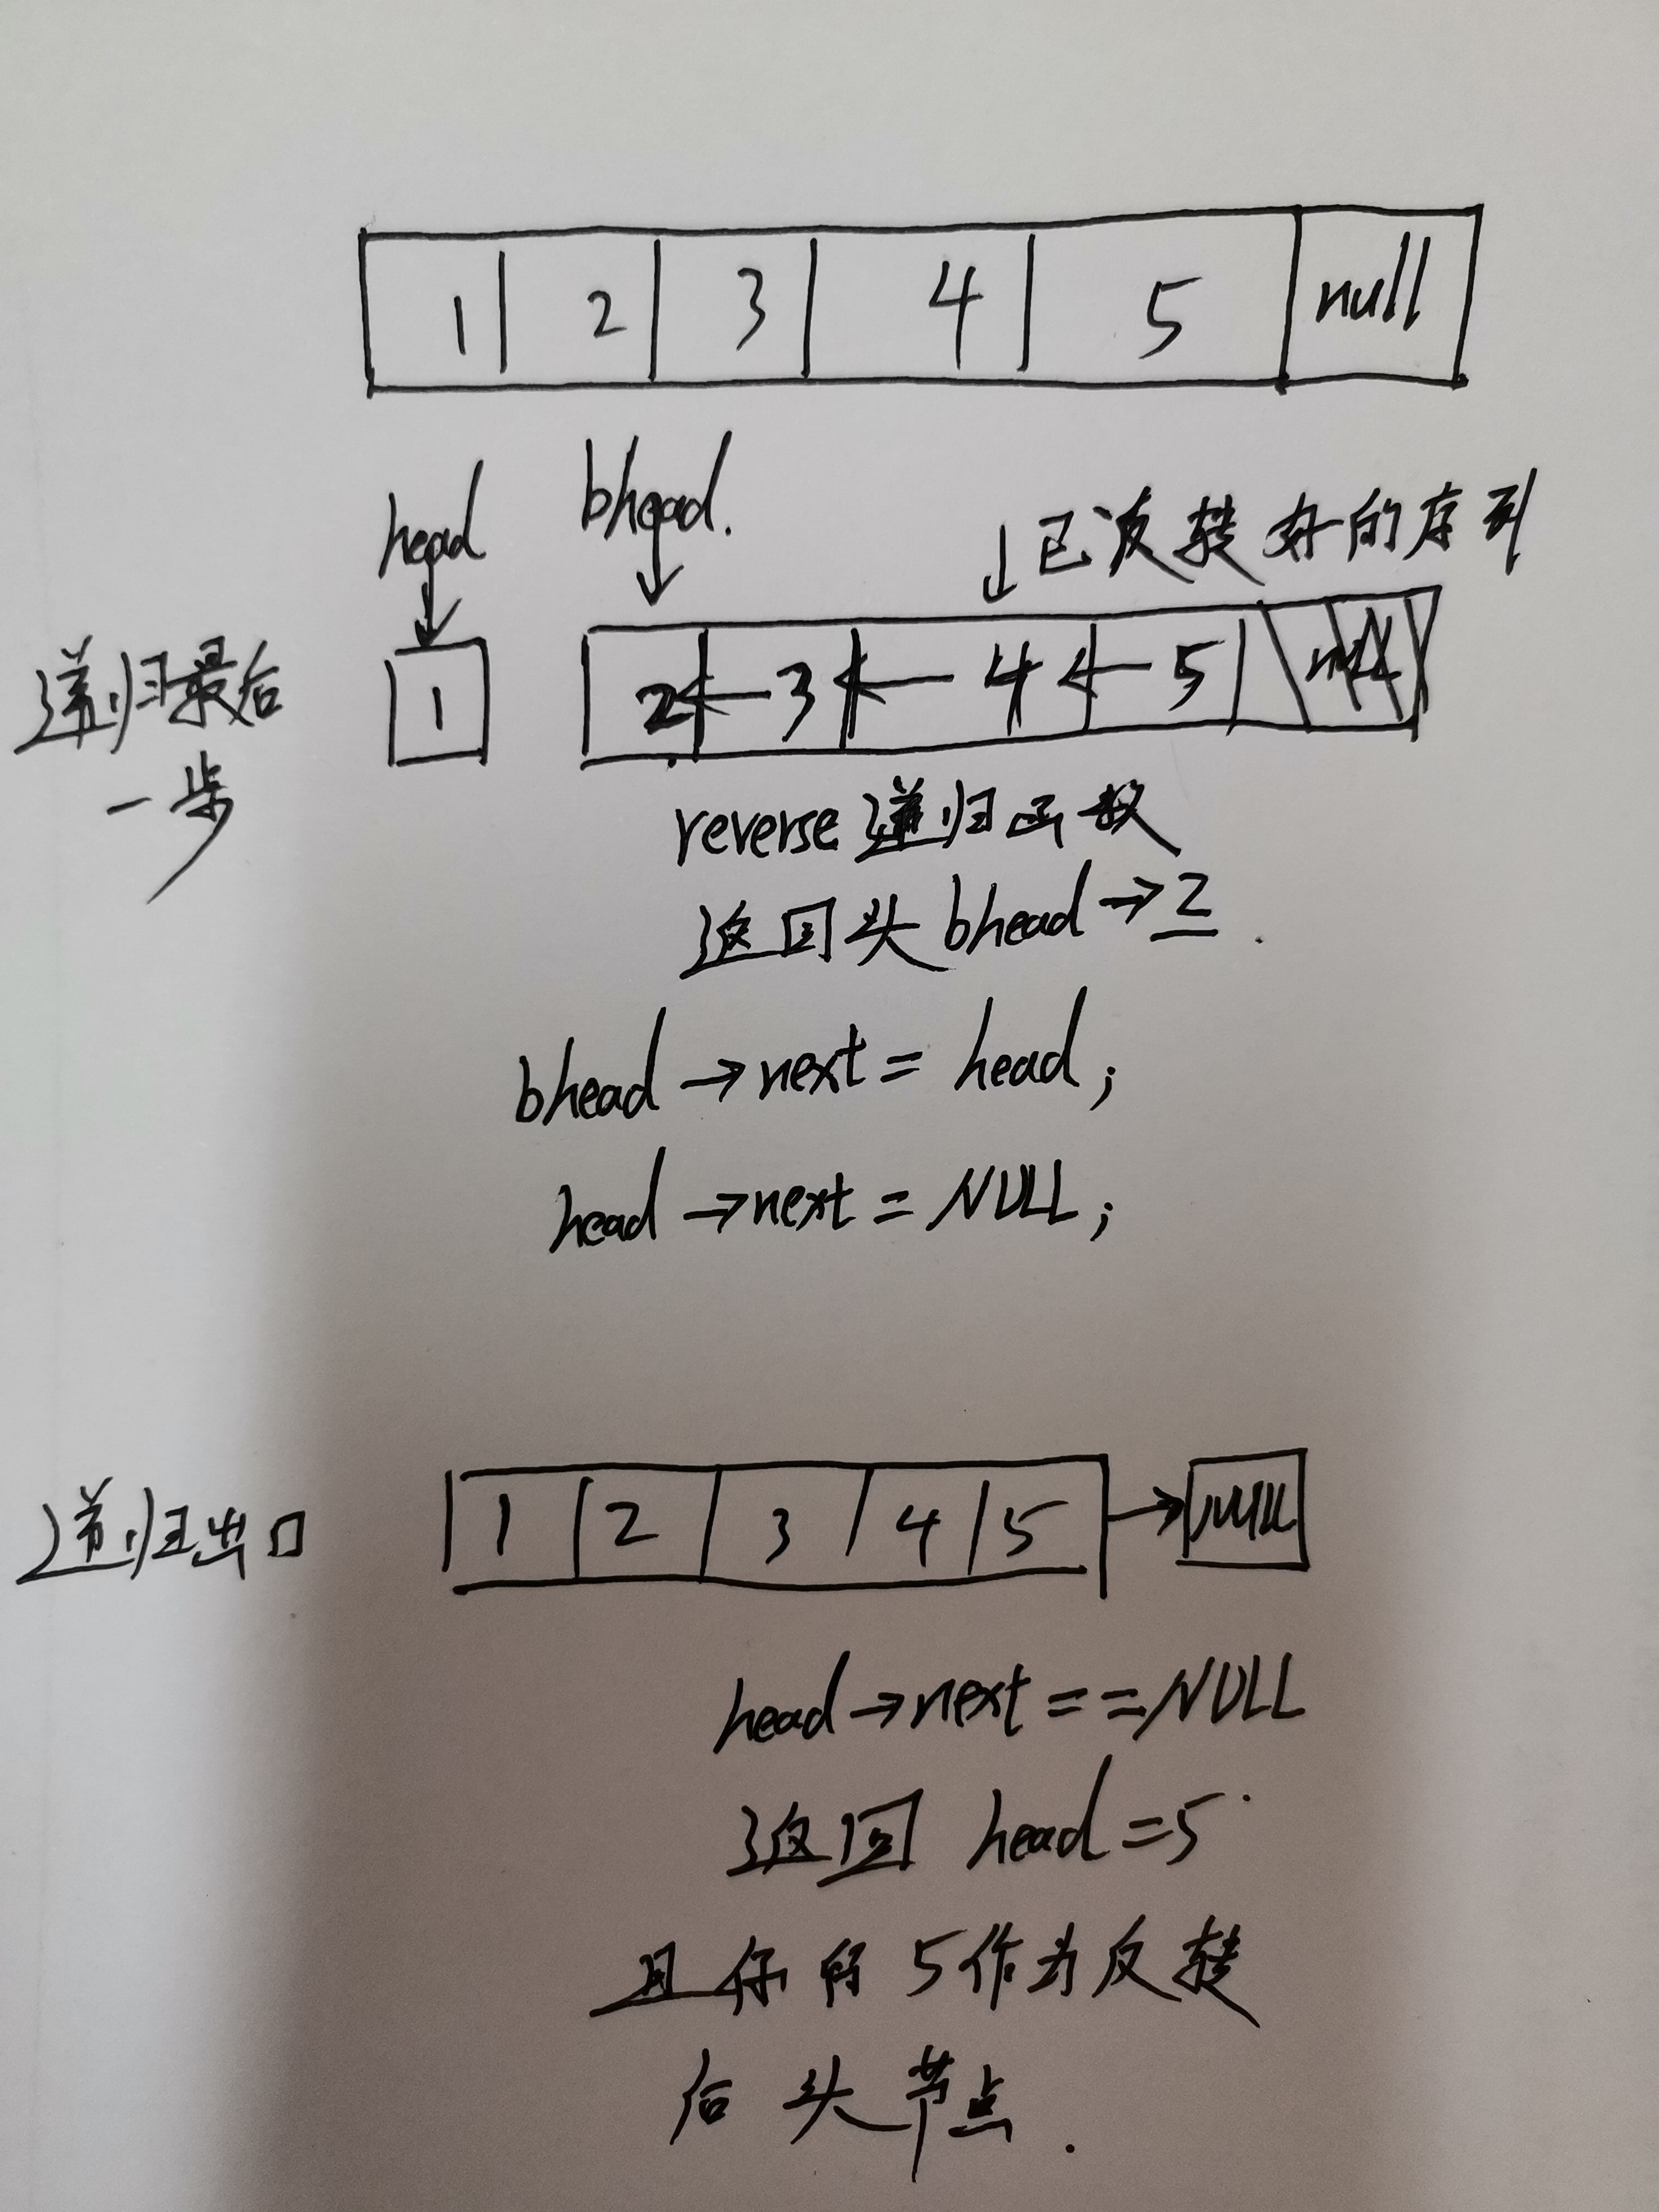 1 2 3 4 5 null
head bhead.
↓已反转好的序列
递归最后
一步
1 2←3←4←5
reverse递归函数
返回头bhead→2.
bhead→next=head;
head→next=NULL;
递归出口
1 2 3 4 5 → null
head→next==NULL
返回 head=5
且 5作为反转
后头节点.